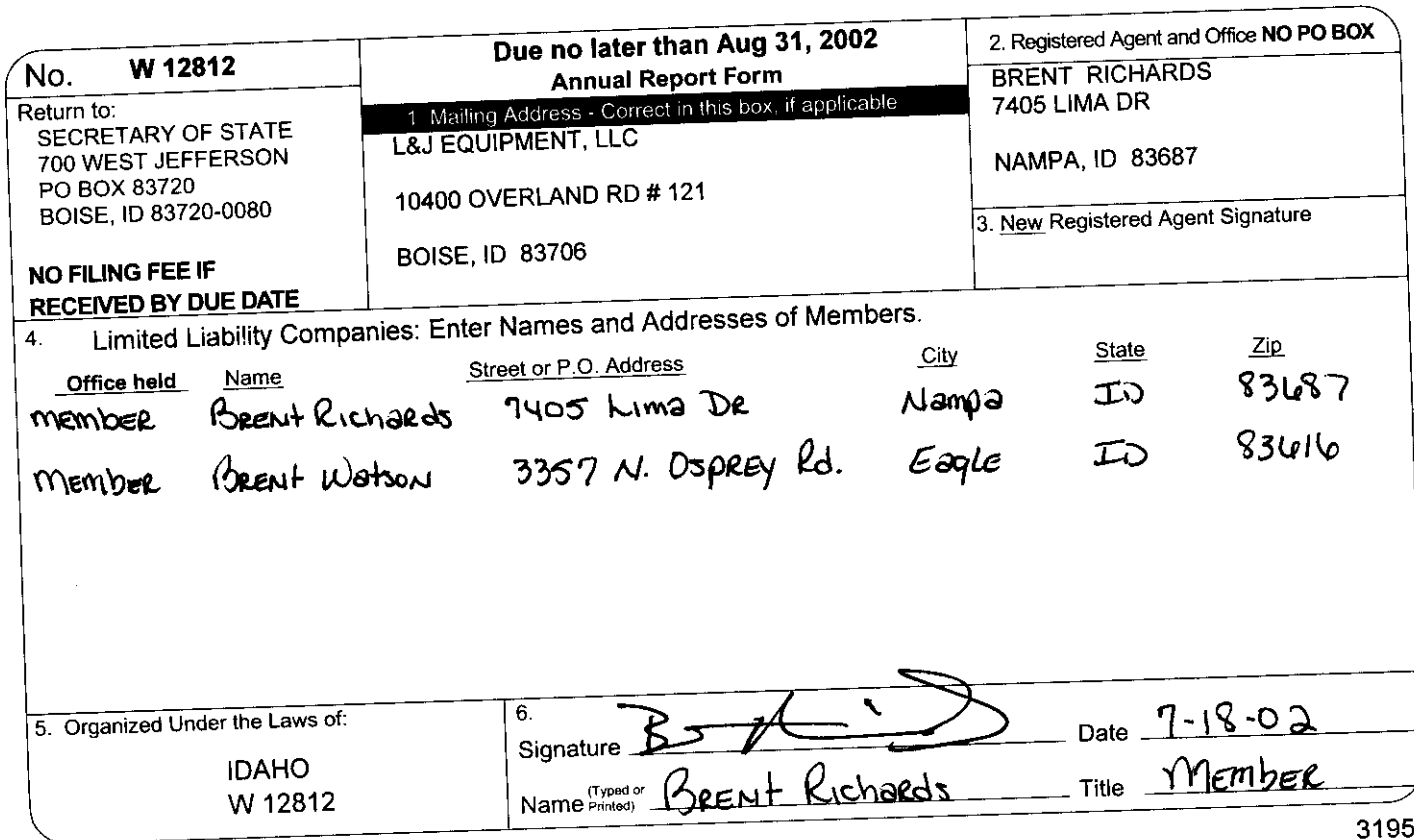 No. W 12812
Return to:
SECRETARY OF STATE
700 WEST JEFFERSON
PO BOX 83720
BOISE, ID 83720-0080
NO FILING FEE IF
RECEIVED BY DUE DATE
Due no later than Aug 31, 2002
Annual Report Form
1 Mailing Address - Correct in this box, if applicable
L&J EQUIPMENT, LLC
10400 OVERLAND RD # 121
BOISE, ID 83706
2. Registered Agent and Office NO PO BOX
BRENT RICHARDS
7405 LIMA DR
NAMPA, ID 83687
3. New Registered Agent Signature
4. Limited Liability Companies: Enter Names and Addresses of Members.
Office held Name Street or P.O. Address City State Zip
member Brent Richards 7405 Lima Dr Nampa ID 83687
Member Brent Watson 3357 N. Osprey Rd. Eagle ID 83616
5. Organized Under the Laws of:
IDAHO
W 12812
6.
Signature Date 7-18-02
Name (Typed or Printed) Brent Richards Title Member
3195